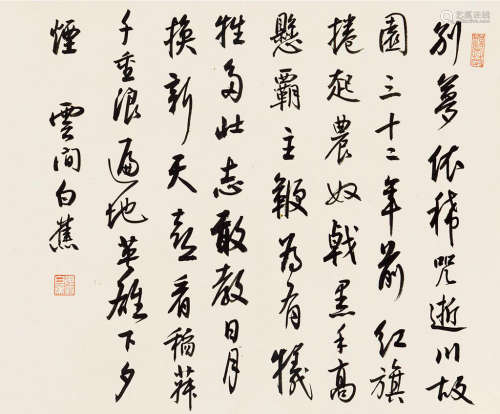 别梦依稀咒逝川故
園三十二年前紅旗
捲起農奴戟黑手高
懸霸主鞭為有犧
牲多壯志敢教日月
換新天喜看稻菽
千重浪遍地英雄下夕
煙 雲間白蕉